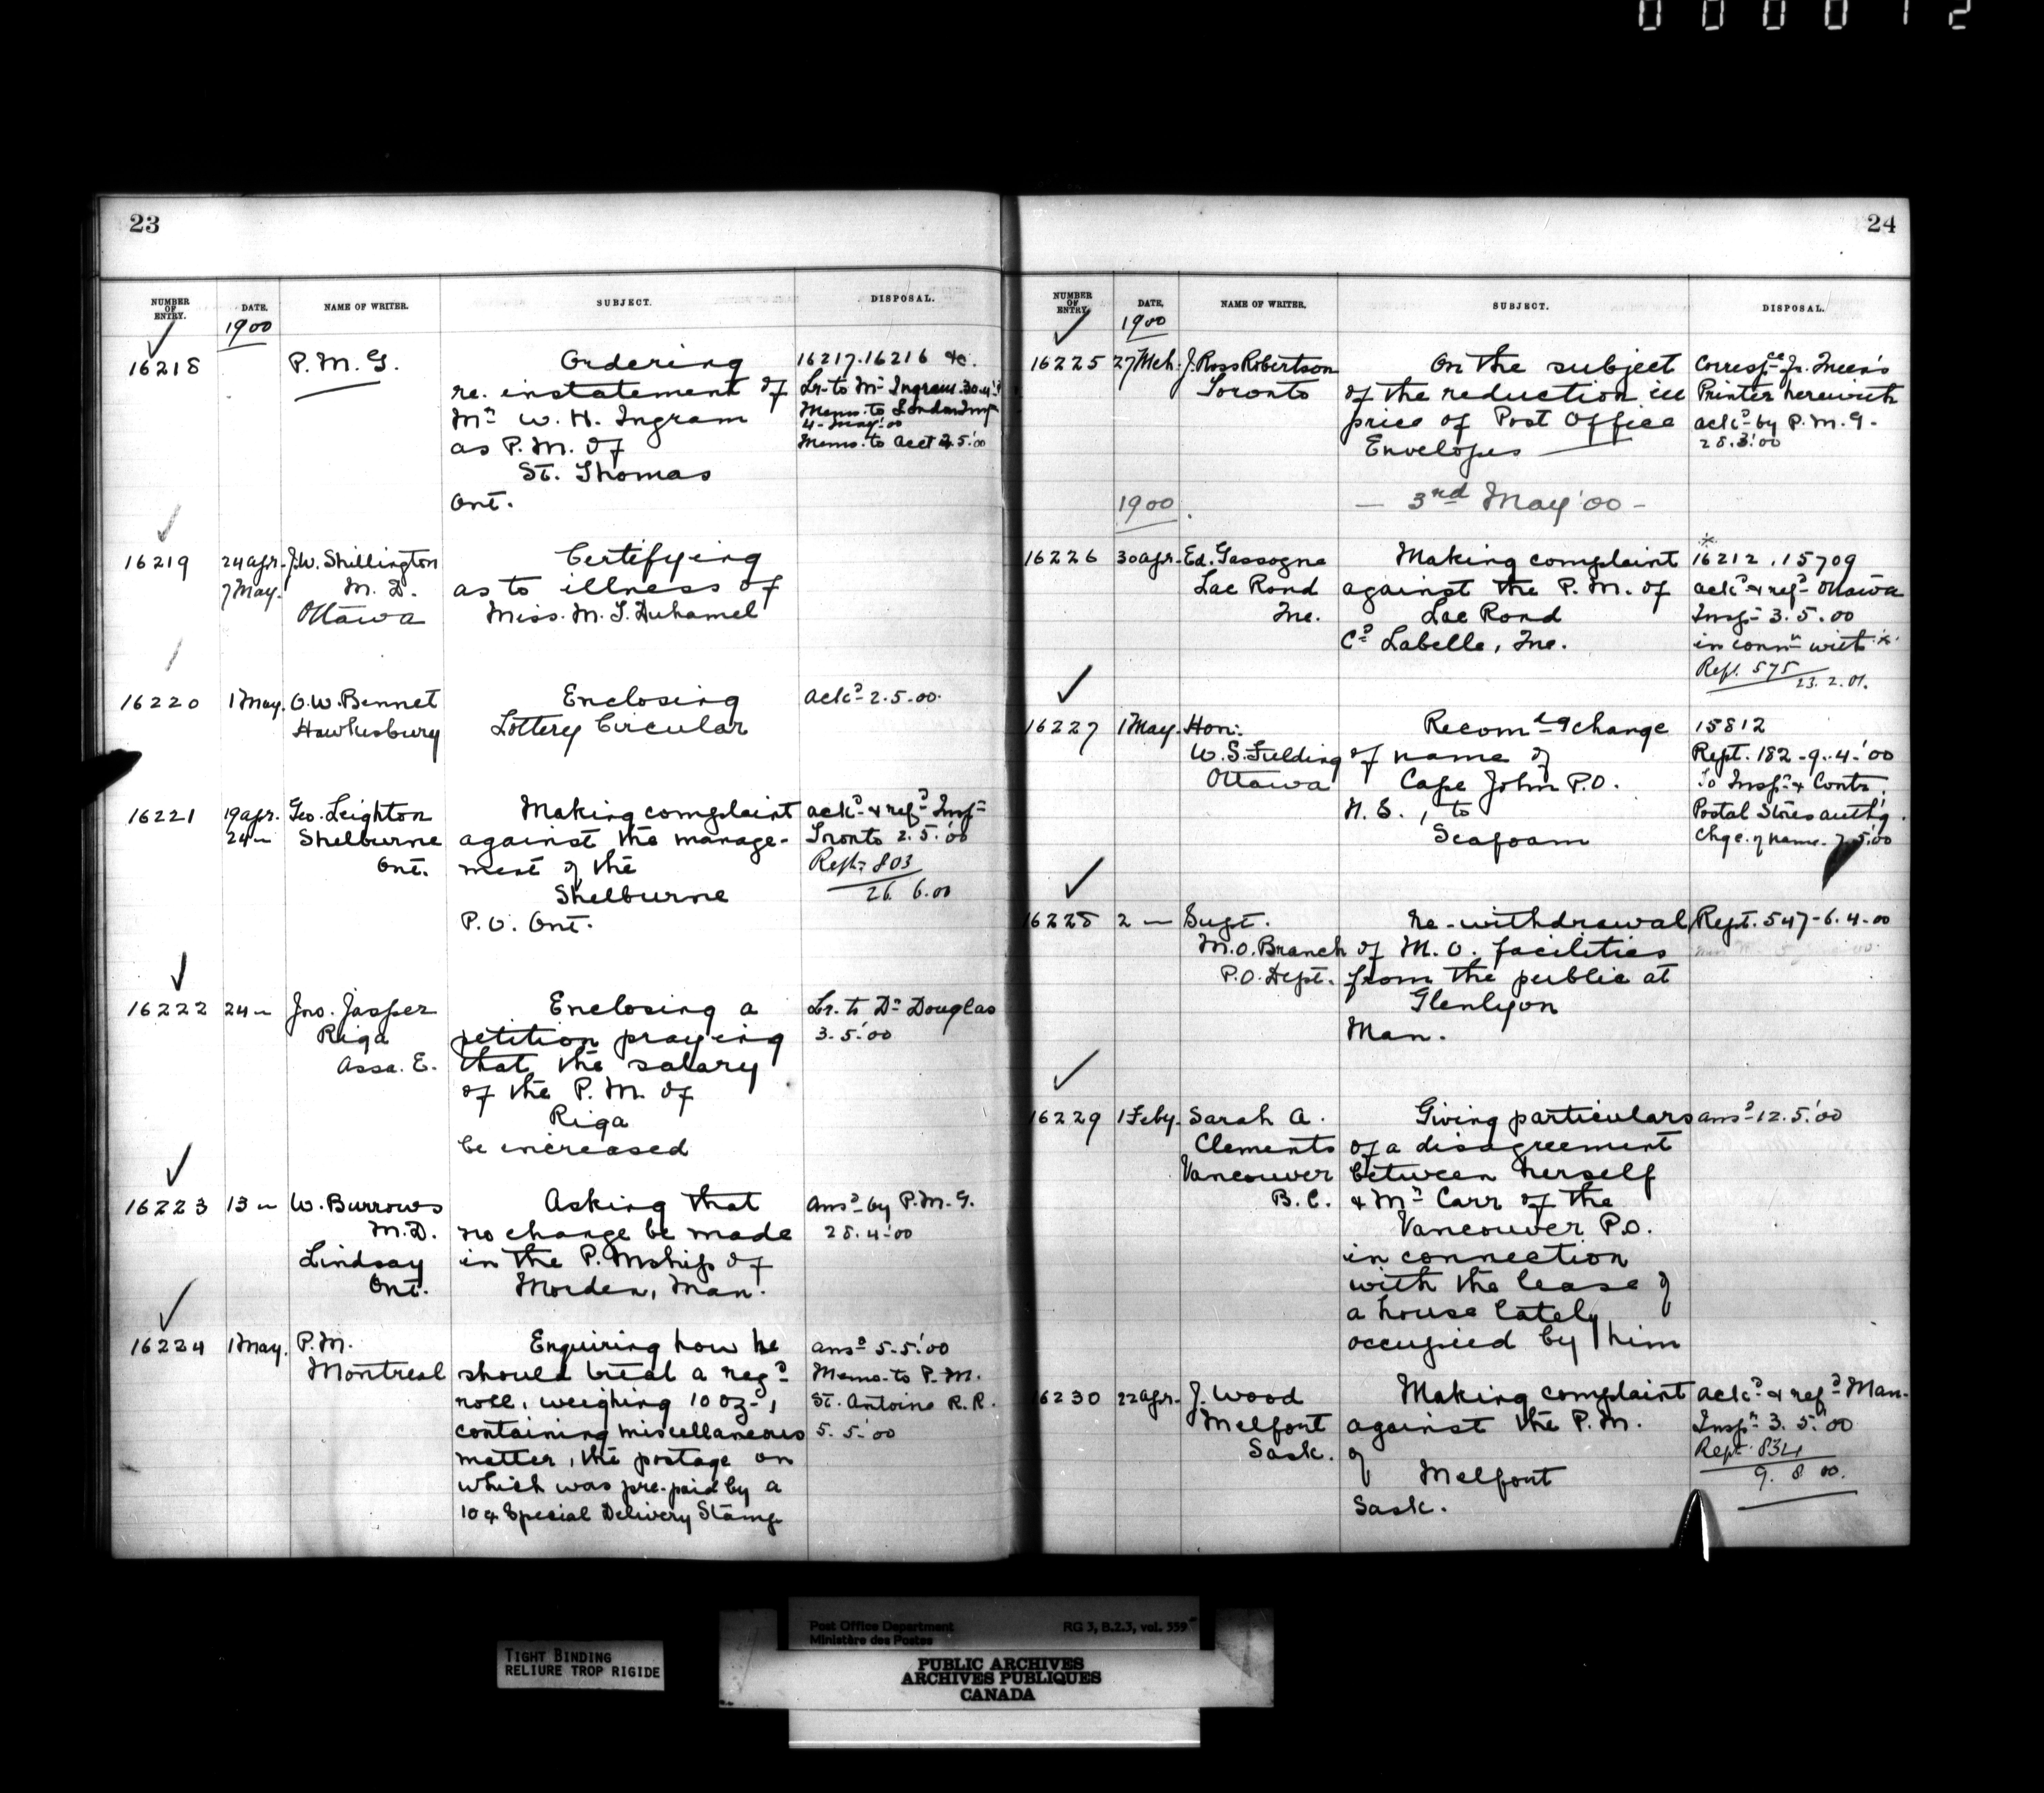 0 0 0 0 1 2
23
NUMBER OF ENTRY.
DATE.
NAME OF WRITER.
SUBJECT.
DISPOSAL.
1900
16218
P. M. G.
Ordering
re. instatement of
Mr W. H. Ingram
as P. M. of
St. Thomas
Ont.
16217. 16216 &c.
Lr. to Mr Ingram 30.4.
Memo. to London Insp
4 - May '00
Memo. to Acct 2.5.'00
16219
24 Apr.
7 May.
J. W. Shillington
M. D.
Ottawa
Certifying
as to illness of
Miss. M. T. Duhamel
16220
1 May.
O. W. Bennet
Hawkesbury
Enclosing
Lottery Circular
Ackd 2.5.00.
16221
19 Apr.
24 "
Geo. Leighton
Shelburne
Ont.
Making complaint
against the manage-
ment of the
Shelburne
P. O. Ont.
Ackd & refd Inspr
Toronto 2.5.'00
Rept. 803
26. 6.00
16222
24 "
Jno. Jasper
Riga
Assa. E.
Enclosing a
petition praying
that the salary
of the P. M. of
Riga
be increased
Lr. to Dr Douglas
3.5.'00
16223
13 "
W. Burrows
M. D.
Lindsay
Ont.
Asking that
no change be made
in the P. Mship of
Morden, Man.
Ansd by P. M. G.
28.4.'00
16224
1 May.
P. M.
Montreal
Enquiring how he
should treat a regd
roll, weighing 10 oz.,
containing miscellaneous
matter, the postage on
which was pre-paid by a
10¢ Special Delivery Stamp
Ansd 5.5.'00
Memo. to P. M.
St. Antoine R. R.
5.5.'00
24
NUMBER OF ENTRY.
DATE.
NAME OF WRITER.
SUBJECT.
DISPOSAL.
1900
16225
27 Mch.
J. Ross Robertson
Toronto
On the subject
of the reduction in
price of Post Office
Envelopes
Correspce fr. Queen's
Printer herewith
Ackd by P. M. G.
28.3.'00
1900
— 3rd May '00 —
16226
30 Apr.
Ed. Gascogne
Lac Rond
Que.
Making complaint
against the P. M. of
Lac Rond
Co Labelle, Que.
*
16212. 15709
Ackd & refd Ottawa
Inspr 3.5.00
in connn with *
Rept. 575
23.2.01.
16227
1 May.
Hon.
W. S. Fielding
Ottawa
Recomdg change
of name of
Cape John P. O.
N. S., to
Seafoam
15812
Rept. 182 - 9.4.'00
To Inspr & Contr.
Postal Stores authg.
Chge. of name. 7.5.'00
16228
2 "
Supt.
M. O. Branch
P. O. Dept.
re-withdrawal
of M. O. facilities
from the public at
Glenlyon
Man.
Rept. 547 - 6.4.00
16229
1 Feby.
Sarah A.
Clements
Vancouver
B. C.
Giving particulars
of a disagreement
between herself
& Mr Carr of the
Vancouver P. O.
in connection
with the lease of
a house lately
occupied by him
Ansd 12.5.'00
16230
22 Apr.
J. Wood
Melfort
Sask.
Making complaint
against the P. M.
of
Melfort
Sask.
Ackd & refd Man.
Inspr 3.5.'00
Rept. 834
9. 8 00.
TIGHT BINDING
RELIURE TROP RIGIDE
Post Office Department
Ministère des Postes
RG 3, B.2.3, vol. 559
PUBLIC ARCHIVES
ARCHIVES PUBLIQUES
CANADA